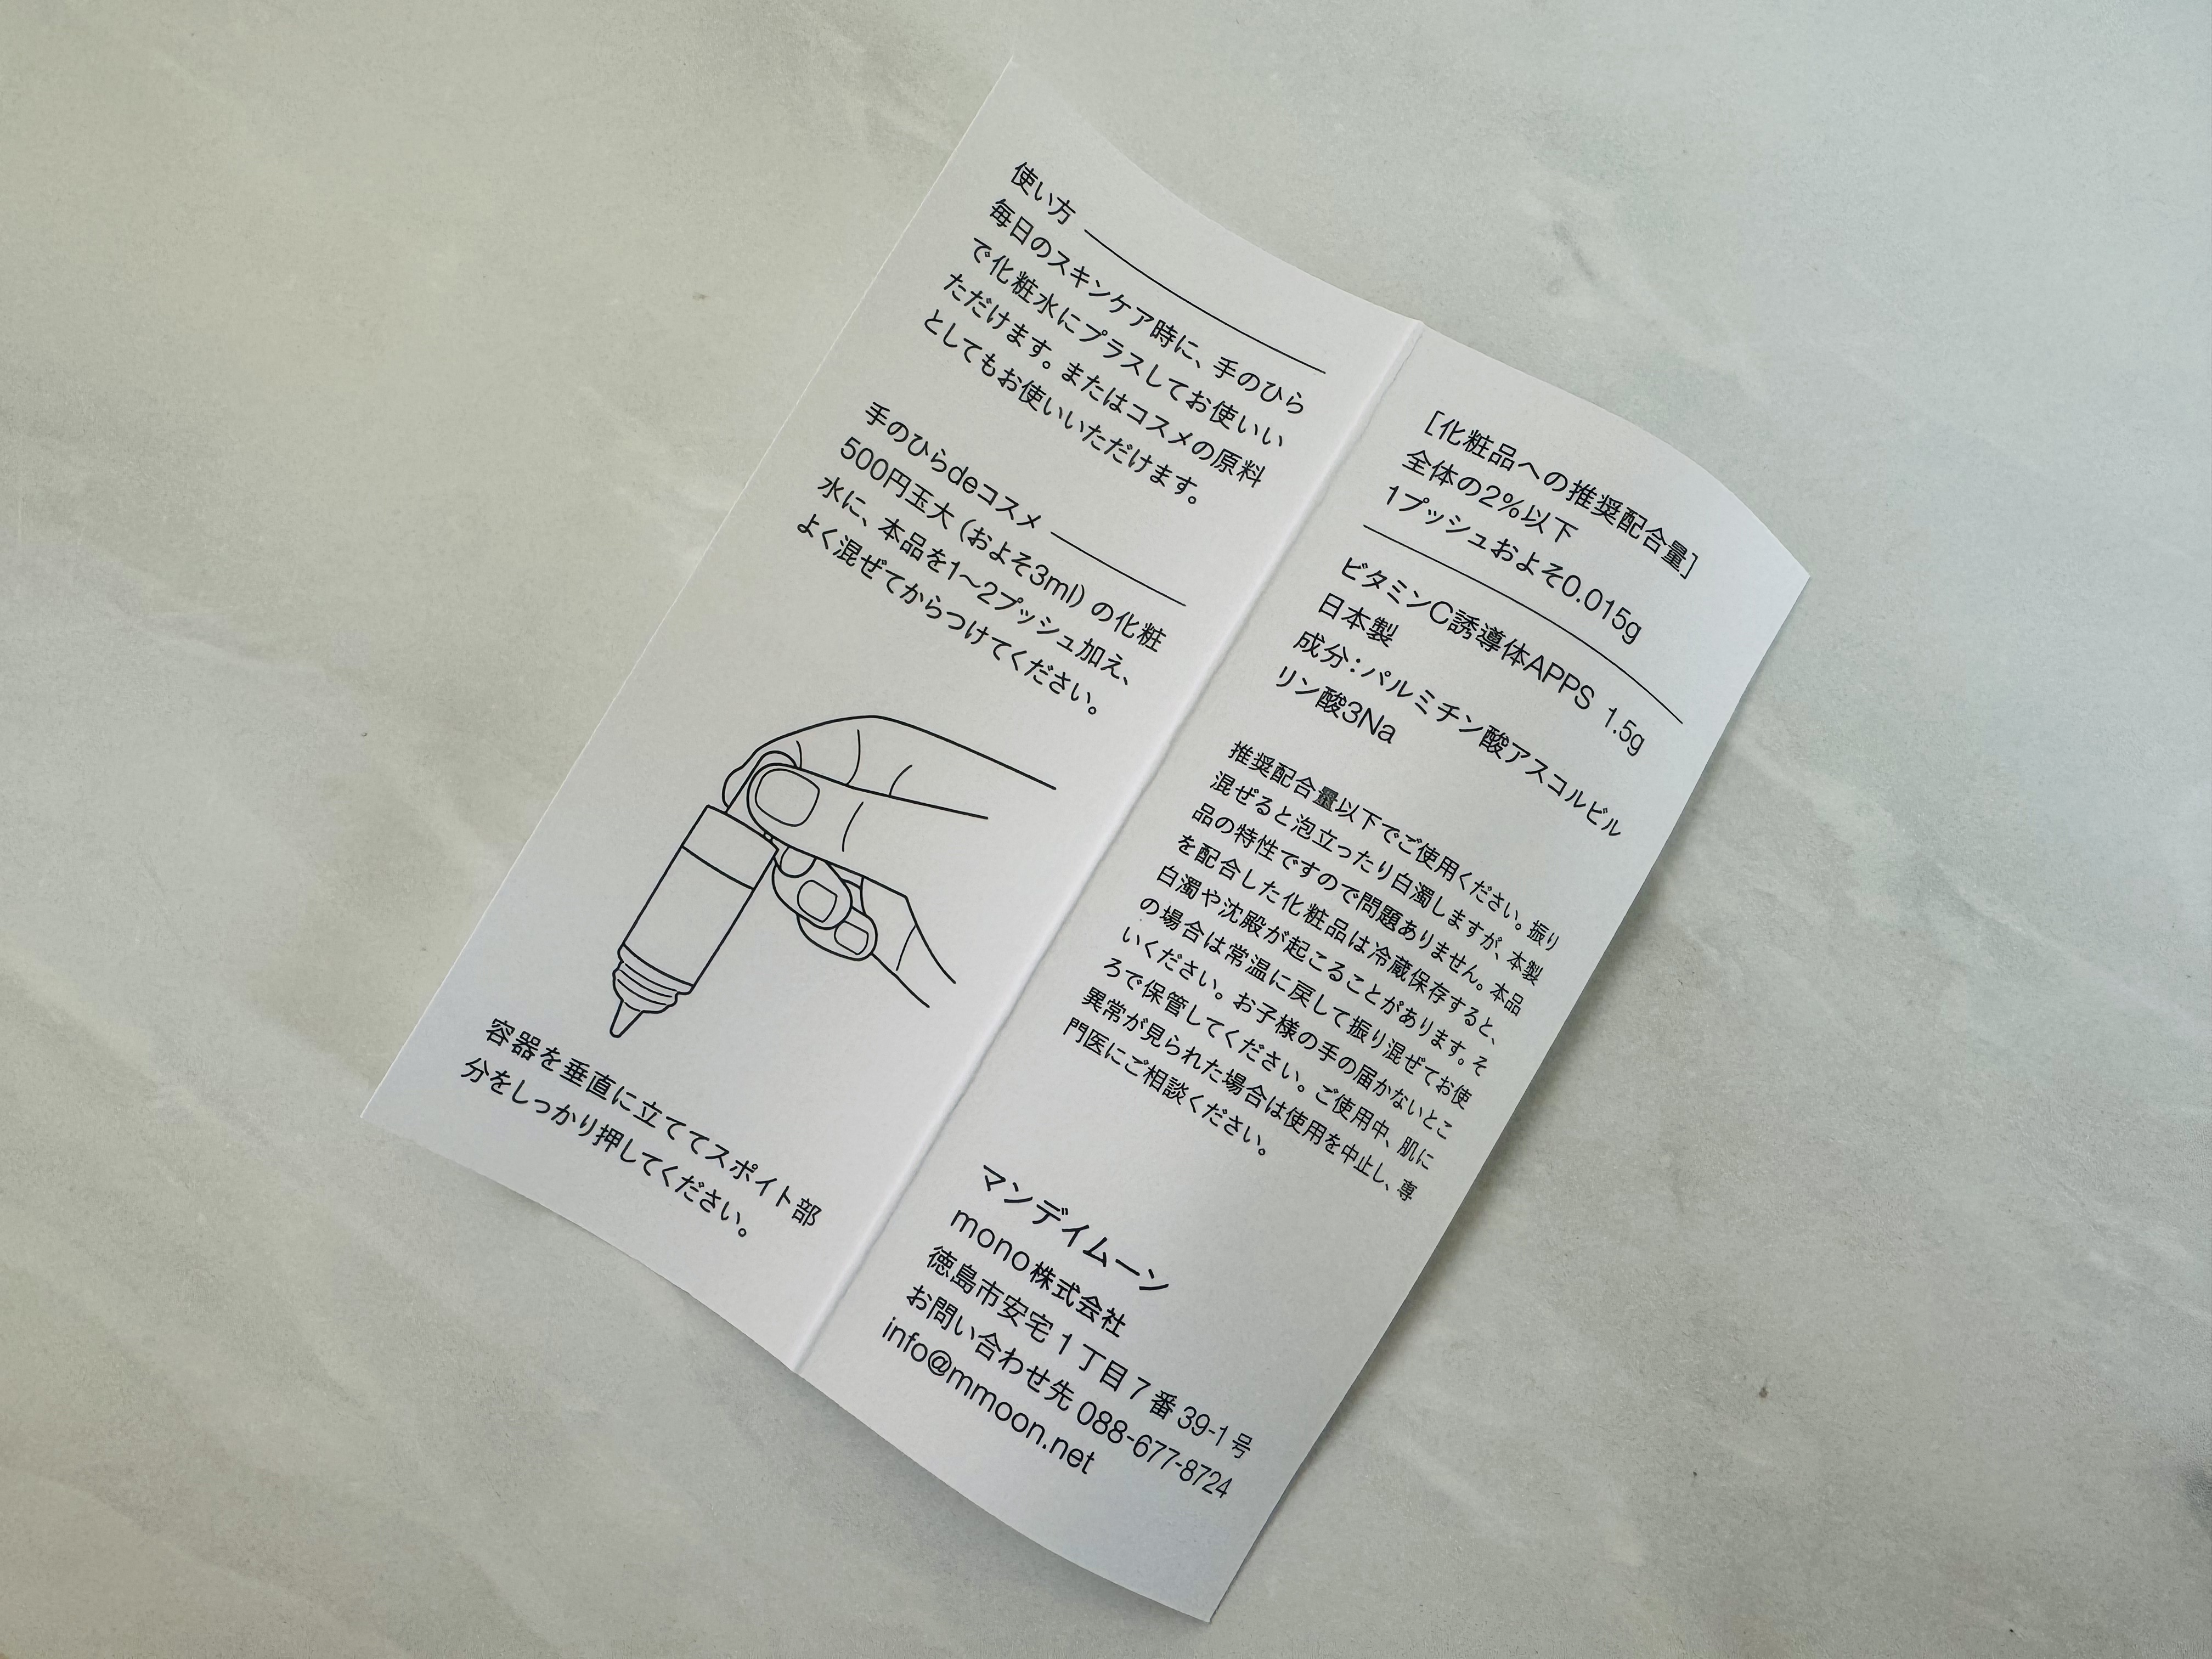 使い方
毎日のスキンケア時に、手のひら
で化粧水にプラスしてお使いい
ただけます。またはコスメの原料
としてもお使いいただけます。
手のひらdeコスメ
500円玉大（およそ3ml）の化粧
水に、本品を1〜2プッシュ加え、
よく混ぜてからつけてください。
容器を垂直に立ててスポイト部
分をしっかり押してください。
［化粧品への推奨配合量］
全体の2%以下
1プッシュおよそ0.015g
ビタミンC誘導体APPS 1.5g
日本製
成分：パルミチン酸アスコルビル
リン酸3Na
推奨配合量以下でご使用ください。振り
混ぜると泡立ったり白濁しますが、本製
品の特性ですので問題ありません。本品
を配合した化粧品は冷蔵保存すると、
白濁や沈殿が起こることがあります。そ
の場合は常温に戻して振り混ぜてお使
いください。お子様の手の届かないとこ
ろで保管してください。ご使用中、肌に
異常が見られた場合は使用を中止し、専
門医にご相談ください。
マンデイムーン
mono株式会社
徳島市安宅1丁目7番39-1号
お問い合わせ先 088-677-8724
info@mmoon.net